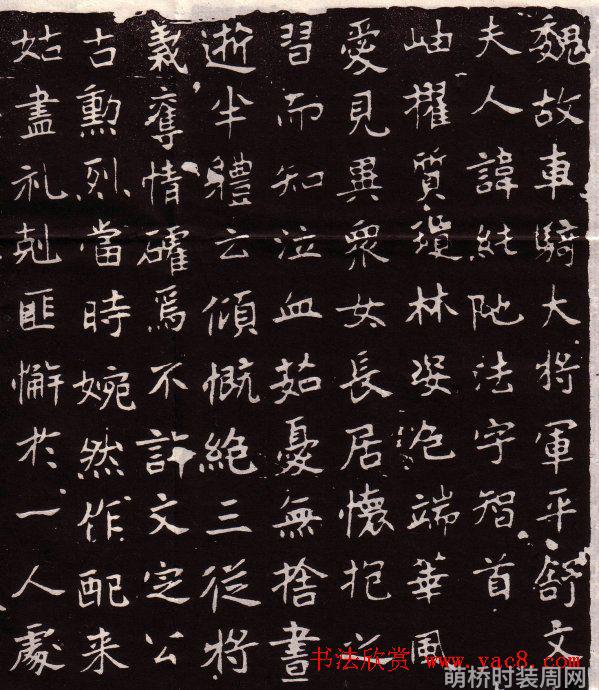 魏故車騎大将軍平舒文
夫人諱純阤法字智首
岫擢質瓊林姿色端華風
愛見異衆女長居懷抱之
習而知泣血茹憂無捨晝
逝半體云傾慨絶三従将
義奪情確焉不許文定公
古勳烈當時婉然作配来
姑盡礼剋匪懈於一人處
书法欣赏 www.yac8.com
萌桥时装周网